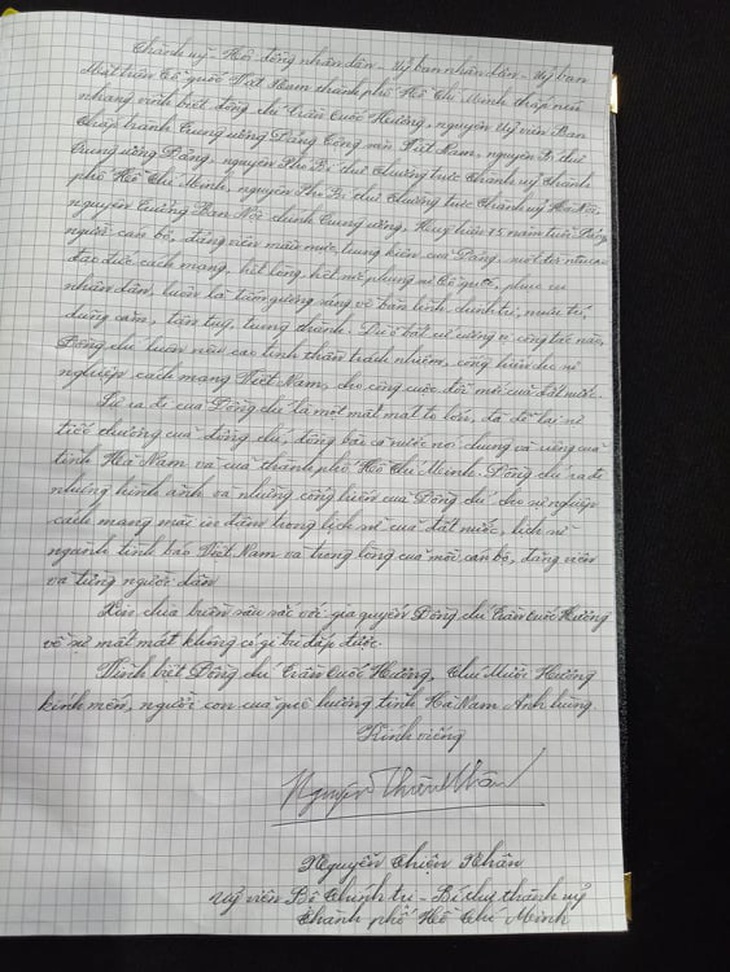 Thành uỷ - Hội đồng nhân dân - Uỷ ban nhân dân - Uỷ ban
Mặt trận Tổ quốc Việt Nam thành phố Hồ Chí Minh thắp nén
nhang vĩnh biệt đồng chí Trần Quốc Hương, nguyên Uỷ viên Ban
Chấp hành Trung ương Đảng Cộng sản Việt Nam, nguyên Bí thư
Trung ương Đảng, nguyên Phó Bí thư Thường trực Thành uỷ thành
phố Hồ Chí Minh, nguyên Phó Bí thư Thường trực Thành uỷ Hà Nội,
nguyên Trưởng Ban Nội chính Trung ương, Huy hiệu 75 năm tuổi Đảng
người cán bộ, đảng viên mẫu mực, trung kiên của Đảng một đời
đạo đức cách mạng, hết lòng, hết sức phụng sự Tổ quốc, phục vụ
nhân dân, luôn là tấm gương sáng về bản lĩnh chính trị, mưu trí,
dũng cảm, tận tuỵ, trung thành. Dù ở bất cứ cương vị công tác nào,
Đồng chí luôn nêu cao tinh thần trách nhiệm, cống hiến cho sự
nghiệp cách mạng Việt Nam, cho công cuộc đổi mới của đất nước.
Sự ra đi của Đồng chí là một mất mát to lớn, đã để lại sự
tiếc thương của đồng chí, đồng bào cả nước nói chung và riêng của
tỉnh Hà Nam và của thành phố Hồ Chí Minh. Đồng chí ra đi
những hình ảnh và những cống hiến của Đồng chí cho sự nghiệp
cách mạng mãi in đậm trong lịch sử của đất nước, lịch sử
ngành tình báo Việt Nam và trong lòng của mỗi cán bộ, đảng viên
và từng người dân
Xin chia buồn sâu sắc với gia quyến Đồng chí Trần Quốc Hương
về sự mất mát không có gì bù đắp được.
Vĩnh biệt Đồng chí Trần Quốc Hương, Chú Mười Hương
kính mến, người con của quê hương tỉnh Hà Nam Anh hùng.
Kính viếng
Nguyễn Thiện Nhân
Nguyễn Thiện Nhân
Uỷ viên Bộ Chính trị - Bí thư thành uỷ
Thành phố Hồ Chí Minh